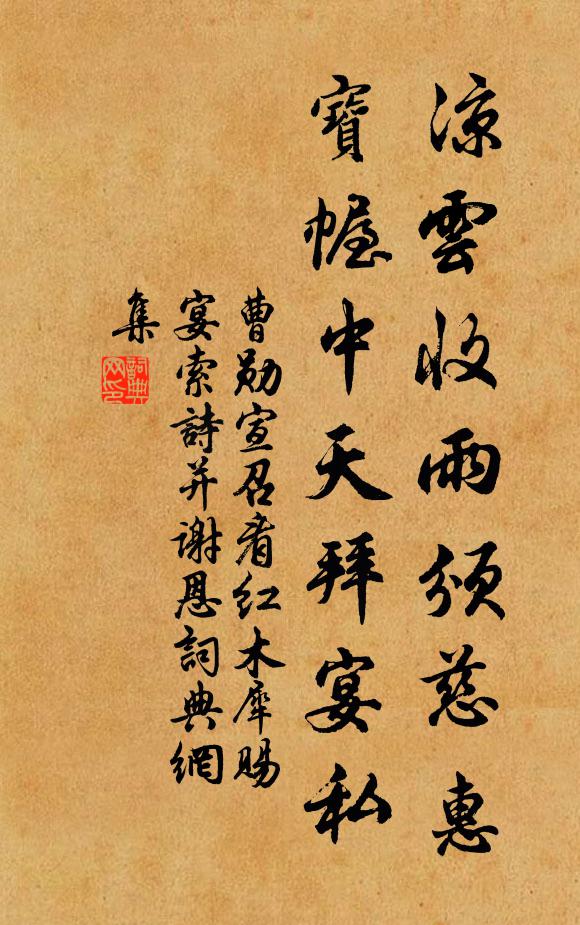 涼雲收雨頒慈惠
寶幄中天拜宴私
曹勛宣召看紅木犀賜
宴索詩并谢恩詞典網
集
詞典
网印